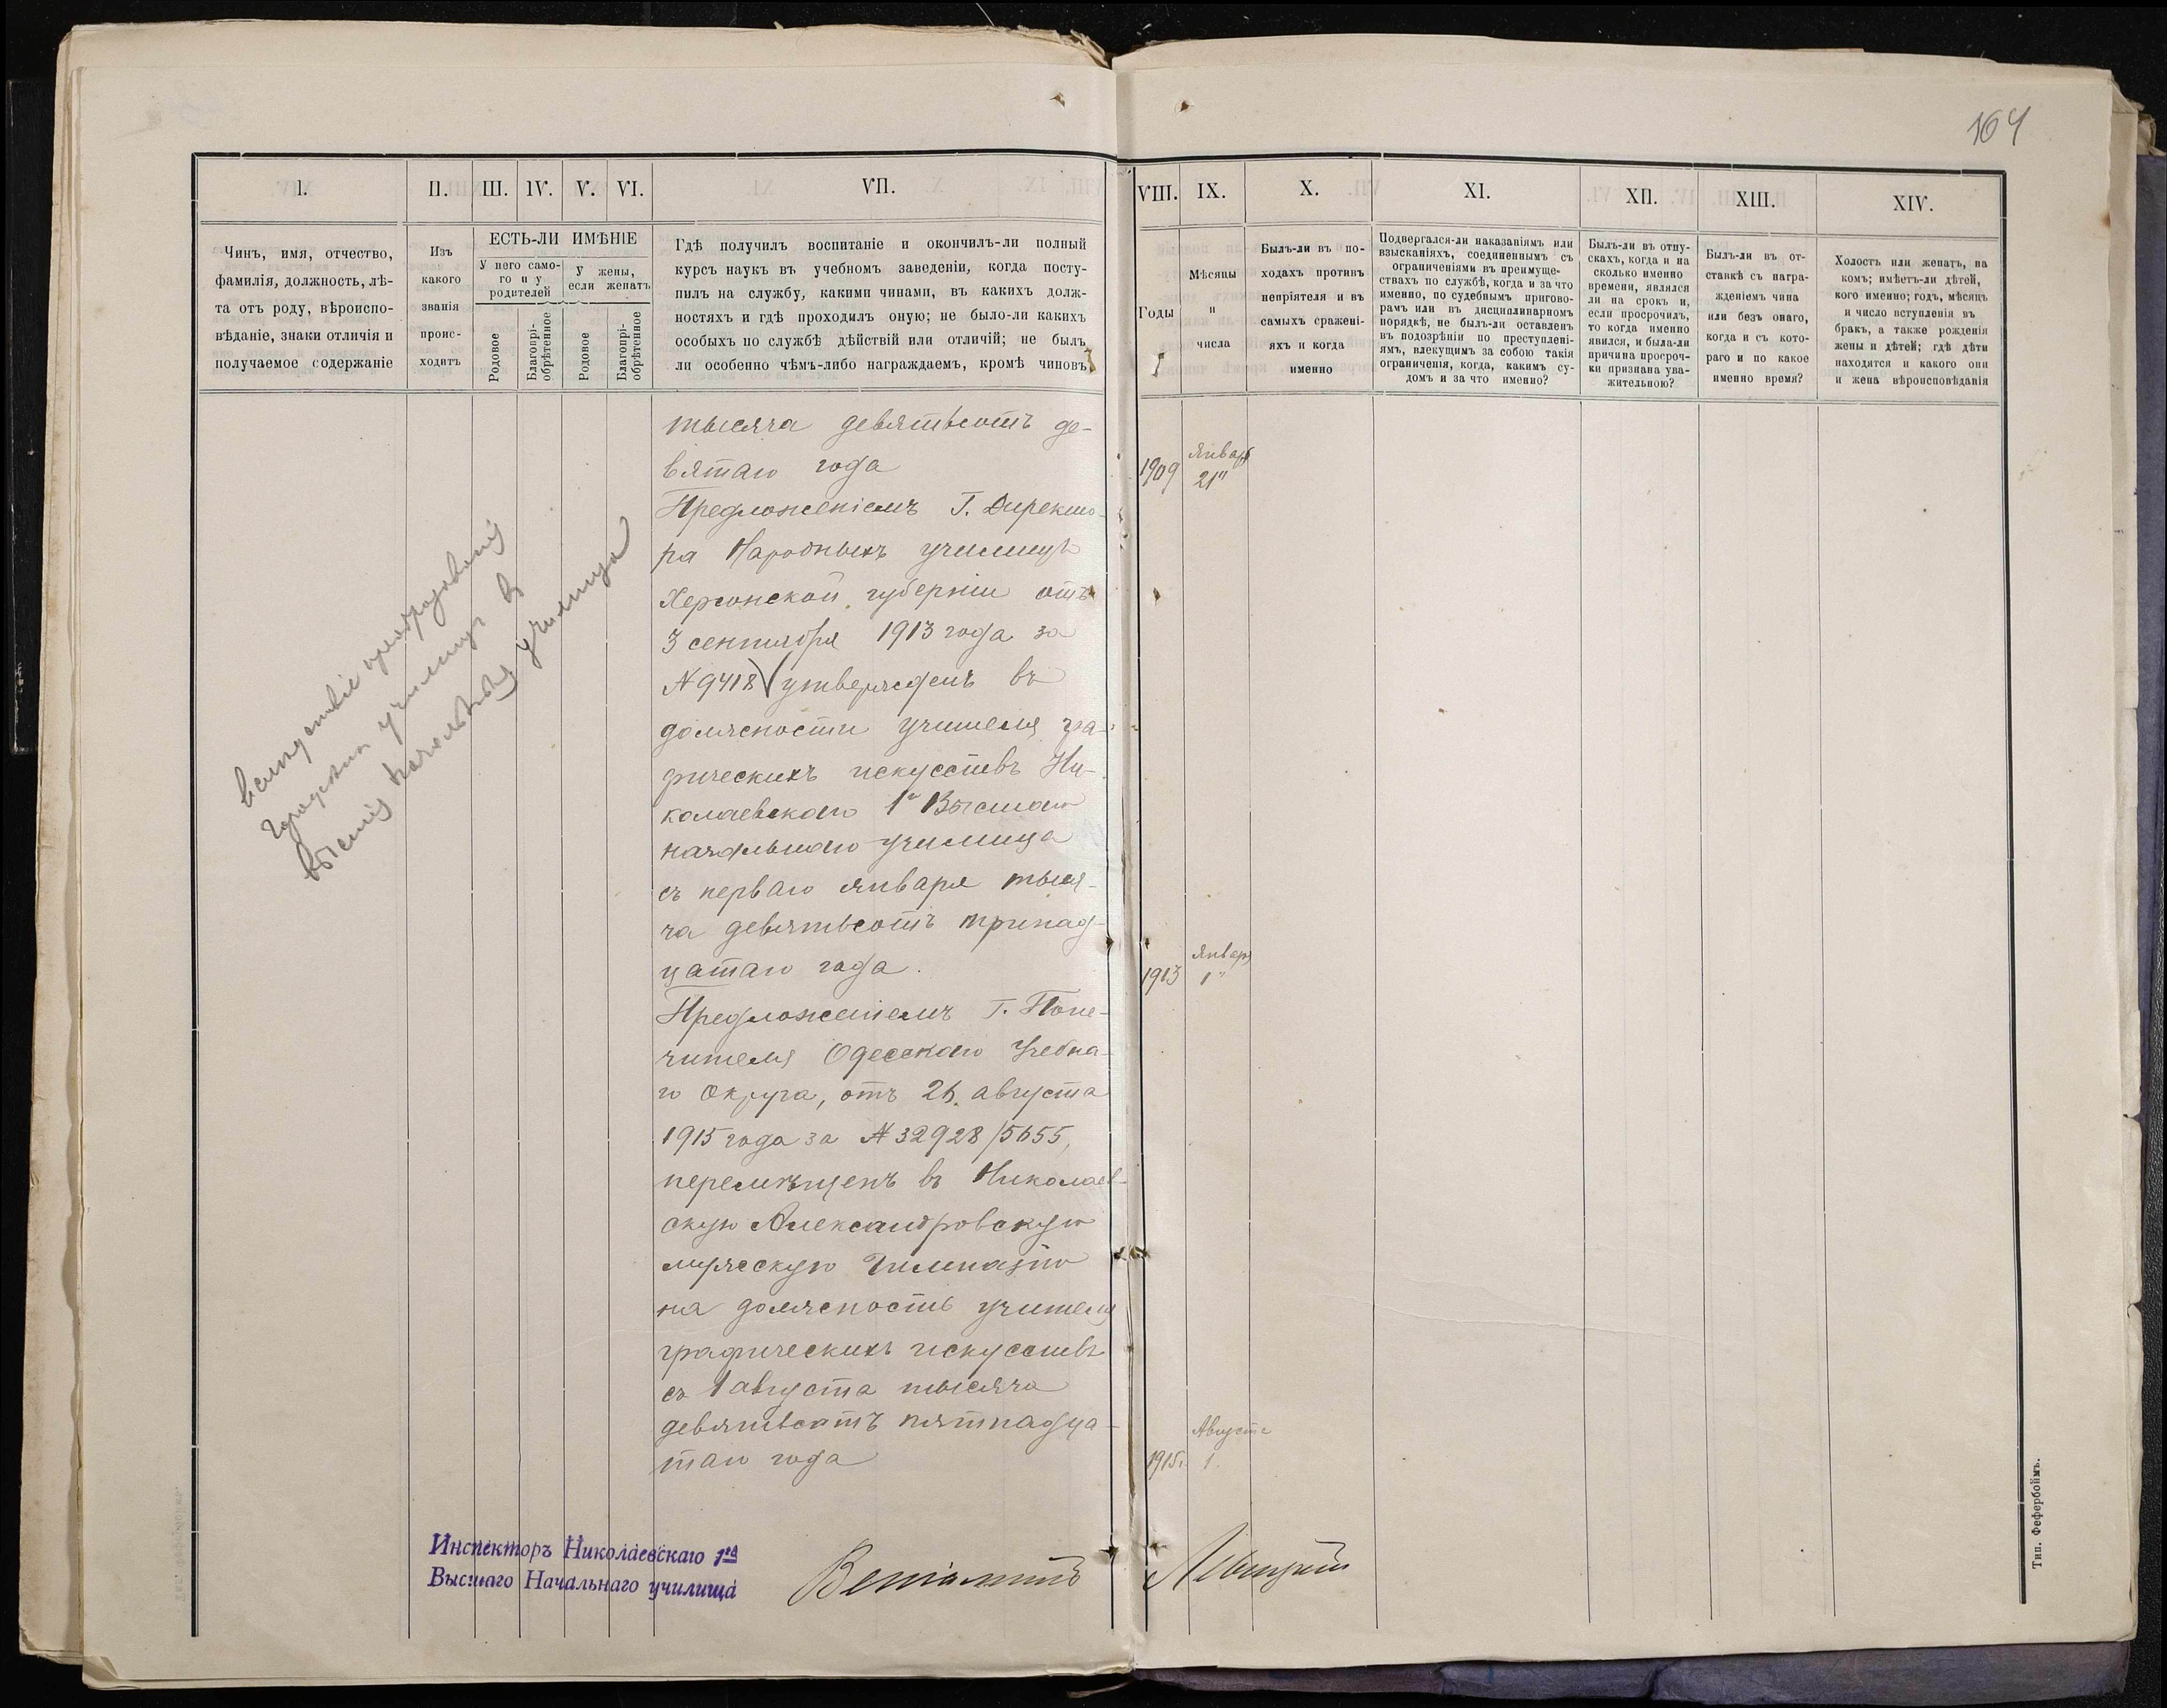 164
I.
II.
III.
IV.
V.
VI.
VII.
Чинъ, имя, отчество,
фамилія, должность, лѣ-
та отъ роду, вѣроиспо-
вѣданіе, знаки отличія и
получаемое содержаніе
Изъ
какого
званія
проис-
ходитъ
ЕСТЬ-ЛИ ИМѢНІЕ
У него само-
го и у
родителей
У жены,
если женатъ
Родовое
Благопрі-
обрѣтенное
Родовое
Благопрі-
обрѣтенное
Гдѣ получилъ воспитаніе и окончилъ-ли полный
курсъ наукъ въ учебномъ заведеніи, когда посту-
пилъ на службу, какими чинами, въ какихъ долж-
ностяхъ и гдѣ проходилъ оную; не было-ли какихъ
особыхъ по службѣ дѣйствій или отличій; не былъ
ли особенно чѣмъ-либо награждаемъ, кромѣ чиновъ
тысяча девятьсотъ де-
вятаго года
Предложеніемъ Г. Директо-
ра Народныхъ училищъ
Херсонской губерніи отъ
3 сентября 1913 года за
№ 9418 утвержденъ въ
должности учителя гра-
фическихъ искусствъ Ни-
колаевскаго 1го Высшаго
начальнаго училища
съ перваго января тыся-
ча девятьсотъ тринад-
цатаго года.
Предложеніемъ Г. Попе-
чителя Одесскаго Учебна-
го Округа, отъ 26 августа
1915 года за № 32928/5655,
перемѣщенъ въ Николаев-
скую Александровскую
мужескую Гимназію
на должность учителя
графическихъ искусствъ
съ 1 августа тысяча
девятьсотъ пятнадца-
таго года
вслѣдствіе преобразованія
городскихъ училищъ в
высшія начальныя училища
Инспекторъ Николаевскаго 1го
Высшаго Начальнаго училища
Веніаминъ Левицкій
VIII.
IX.
X.
XI.
XII.
XIII.
XIV.
Годы
Мѣсяцы
и
числа
Былъ-ли въ по-
ходахъ противъ
непріятеля и въ
самыхъ сражені-
яхъ и когда
именно
Подвергался-ли наказаніямъ или
взысканіяхъ, соединеннымъ съ
ограниченіями въ преимуще-
ствахъ по службѣ, когда и за что
именно, по судебнымъ пригово-
рамъ или въ дисциплинарномъ
порядкѣ, не былъ-ли оставленъ
въ подозрѣніи по преступлені-
ямъ, влекущимъ за собою такія
ограниченія, когда, какимъ су-
домъ и за что именно?
Былъ-ли въ отпу-
скахъ, когда и на
сколько именно
времени, являлся
ли на срокъ и,
если просрочилъ,
то когда именно
явился, и была-ли
причина просроч-
ки признана ува-
жительною?
Былъ-ли въ от-
ставкѣ съ награ-
жденіемъ чина
или безъ онаго,
когда и съ кото-
раго и по какое
именно время?
Холостъ или женатъ, на
комъ; имѣетъ-ли дѣтей,
кого именно; годъ, мѣсяцъ
и число вступленія въ
бракъ, а также рожденія
жены и дѣтей; гдѣ дѣти
находятся и какого они
и жена вѣроисповѣданія
Январ
1909 21"
Январ
1913 1"
Августа
1915г. 1.
Тип. Фефербоймъ.